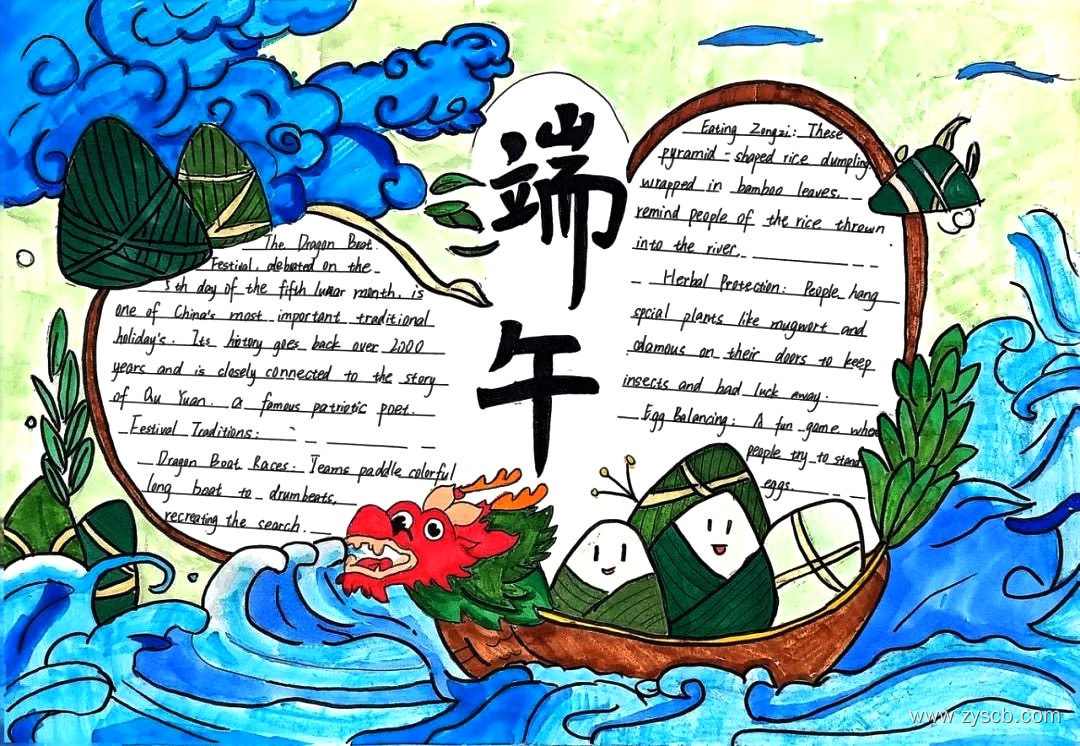 端午
The Dragon Boat
Festival, debated on the
5th day of the fifth lunar month, is
one of China's most important traditional
holiday's. Its hirtory goes back over 2000
years and is closely connected to the story
of Qu Yuan. a famous patriotic poet.
Festival Traditions:
Dragon Boat Races: Teams paddle colorful
long boat to drumbeats,
recreating the search.
Eating Zongzi: These
pyramid-shaped rice dumpling
wrapped in bamboo leaves,
remind people of the rice thrown
into the river.
Herbal Protection: People hang
spcial plants like mugwort and
calamous on their doors to keep
insects and bad luck away.
Egg Balancing: A fun game where
people try to stand
eggs.
www.zyscb.com